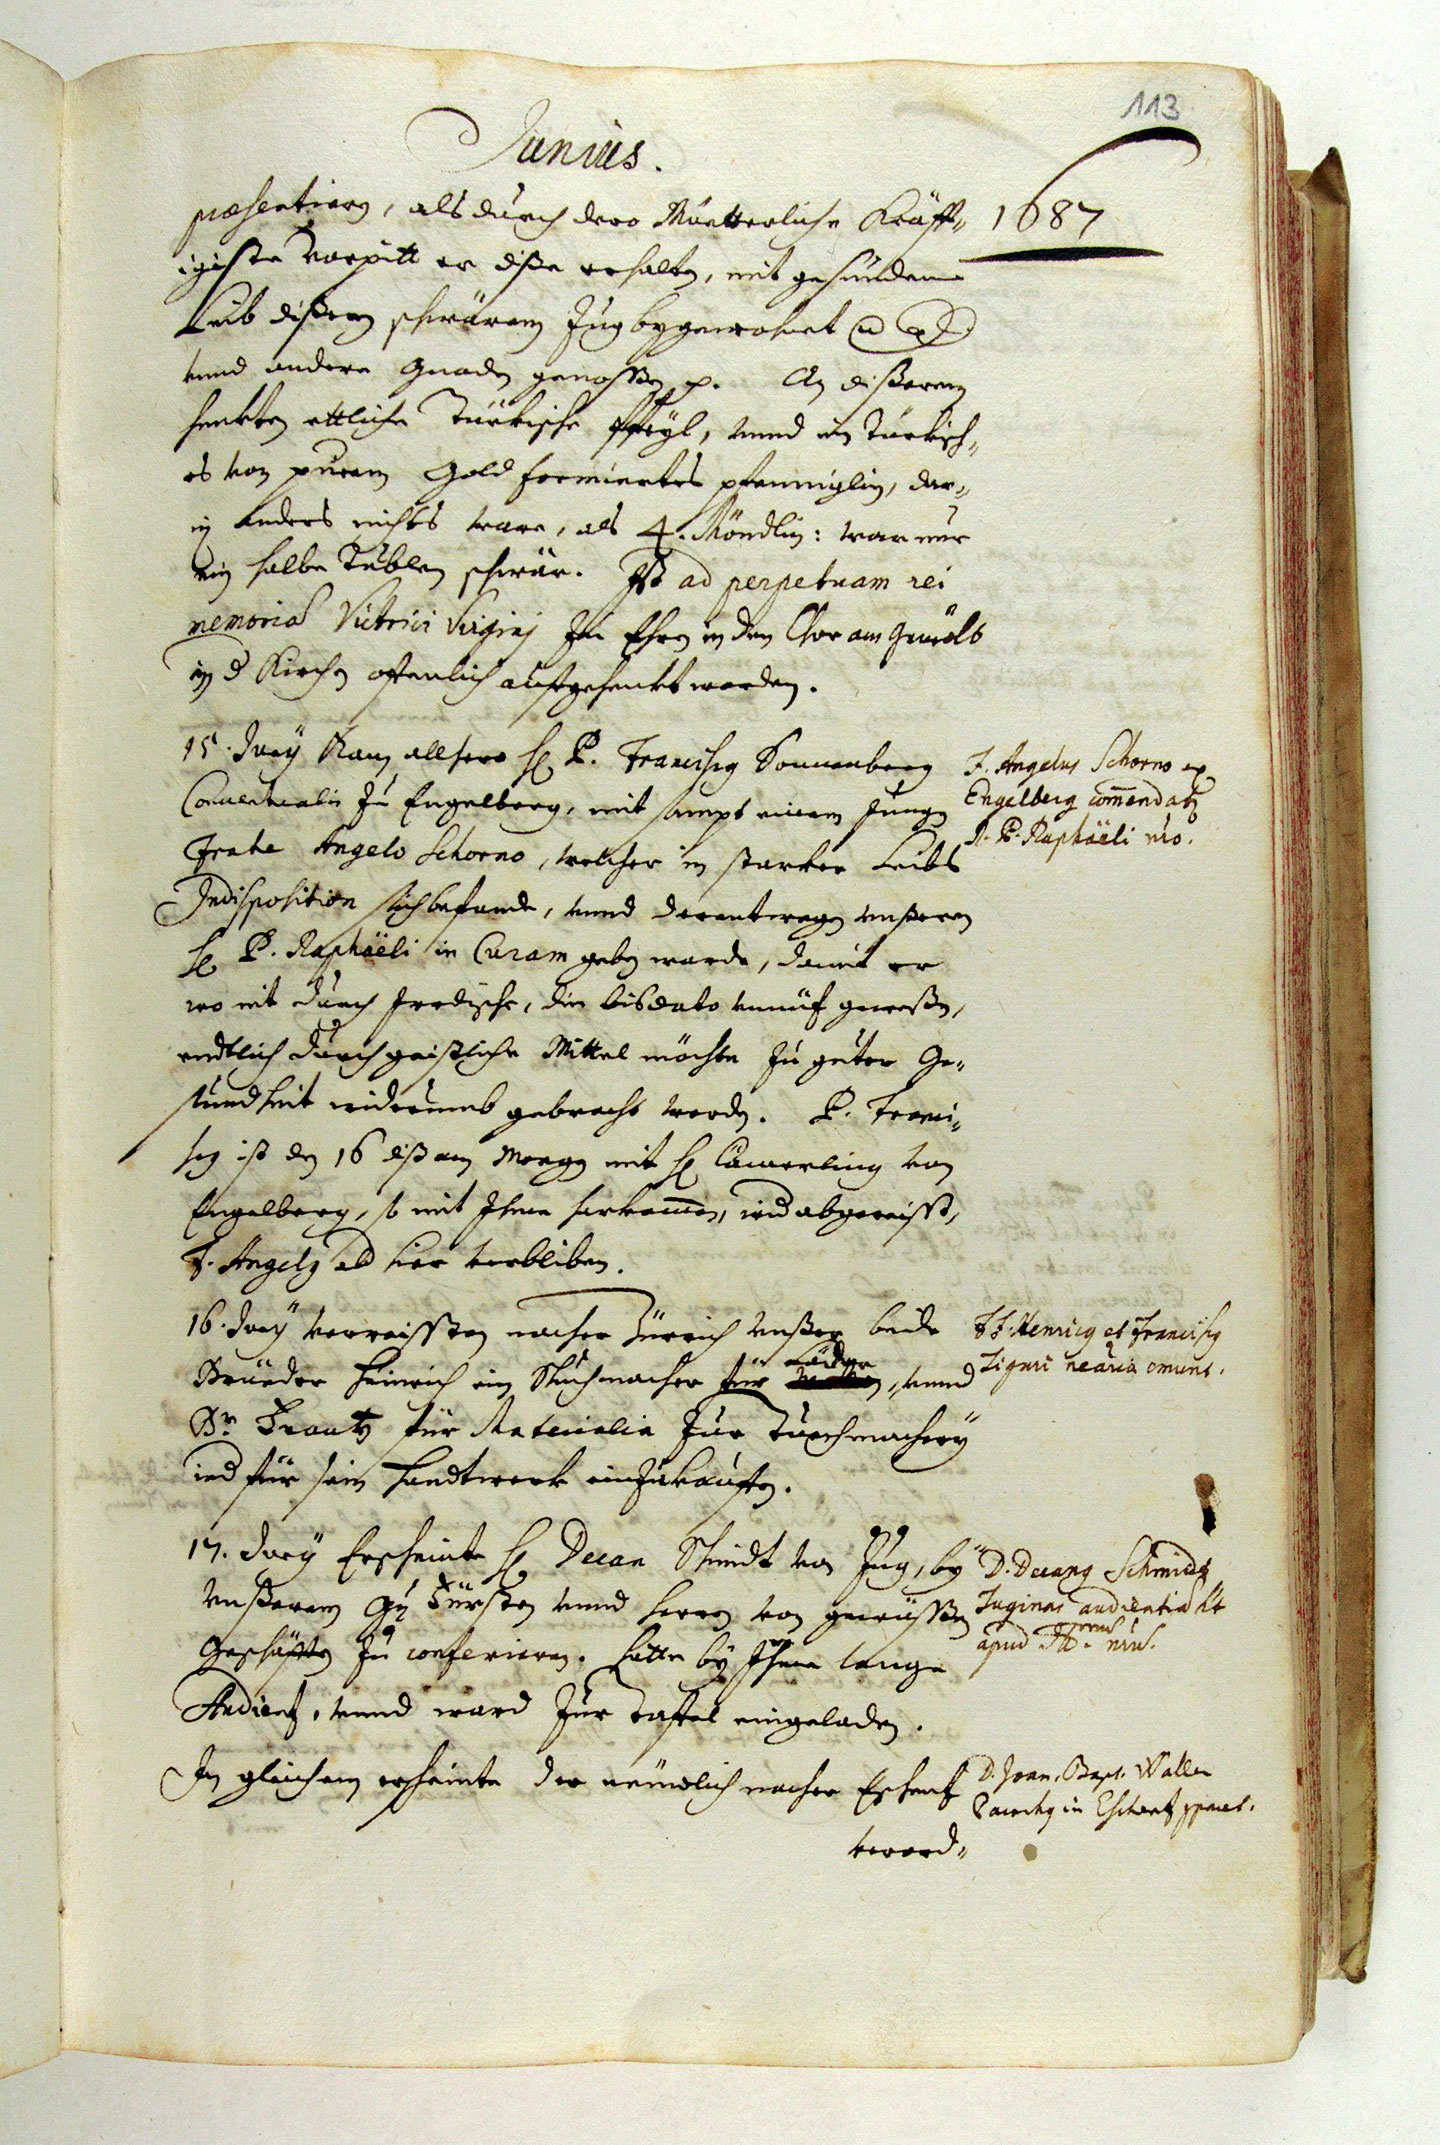 113
Junius.
1687
præsentieren, als durch dero Müetterliche Kräfft-
igiste Vorpitt er dise erhalten, mit gesundem
Leib diserem schwärem Zug bygewohnet
unnd andere Gnaden genossen p. An diserem
henkten ettliche Türkische Pfeyl, unnd ein Türkisch-
es von purem Gold formiertes pfenniglin, dar-
in anders nichts ware, als 4. Möndlin: war nur
ein halbe Dublen schwär. Ist ad perpetuam rei
memoriam Victrici Virgini Zu Ehren in den Chor am Gewölb
in d Kirchen offenlich auffgehenkt worden.
15. Juny Kam allhero H. P. Franciscus Sonnenberg
Conventualis Zu Engelberg, mit sampt einem Jungen
Fratre Angelo Schorno, welcher in starker Leibs
Indisposition sich befande, unnd derentwegen unserem
H. P. Raphaëli in Curam geben warde, damit er
wo nit durch Irrdische, die bis dato umsust gewesen,
endtlich durch geistliche Mittel möchte Zu guter Ge-
sundtheit widerumb gebracht werden. P. Franci-
scus ist den 16 diss am Morgen mit H. Cämerling von
Engelberg, so mit Ihme harkommen, wid abgereisst,
F. Angelus ab hier verbliben.
F. Angelus Schorno ex
Engelberg commendatus
R. P. Raphaëli nro.
16. Juny verreissten nacher Zürrich unsere beide
Brüeder Heinrich ein Schuhmacher für Läder, unnd
Br. Frantz für Materialia Zur Tuechmachery
und für sein Handtwerk einzukauffen.
FF. Henricus et Franciscus
Tiguri necaria emunt.
17. Juny Erscheinte H. Decan Schmidt von Zug, by
unserem Gn Fürsten unnd Herren von gewüssen
Geschäfften Zu conferieren. Hatte by Ihme lange
Audientz, unnd ward Zur Taffel eingeladen.
D. Decanus Schmidt
Tuginus audientiam ht
apud Rmum D. nrum.
In gleichem erscheinte der neüwlich nacher Eschentz
word-
D. Joan. Bapt. Waller
Parochus in Eschentz